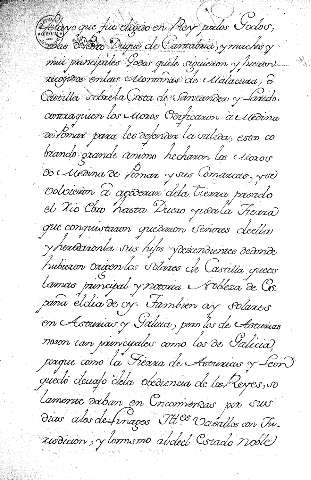 Pelayo que fue elegido en Rey por los Godos,
de Cantabria, y muchos y
muy principales Godos que le siguieron y hicieron
en las Montañas de Malacuera, o
Castilla sobre la Costa de Santander y Laredo
los Moros edificaron a Medina
de Pomar para les defender la salida, estos co
brando grande animo hecharon los Moros
de Medina de Pomar y sus Comarcas, y se
bolvieron a apoderar dela tierra pasado
el Rio Ebro hasta Duero, y toda la tierra
que conquistaron quedaron Señores de ella
y heredaronla sus hijos y descendientes de donde
hubieron origen los Solares de Castilla, ques
la mas principal y notoria Nobleza de Es
paña el dia de oy. Tambien ay solares
en Asturias y Galicia, pero los de Asturias
no son tan principales como los de Galicia
porque como la tierra de Asturias y Leon
quedó devajo dela obediencia de los Reyes, so
lamente daban en Encomiendas por sus
dias a los de Linages Vasallos con Ju
risdicion, y lo mismo al del Estado Noble